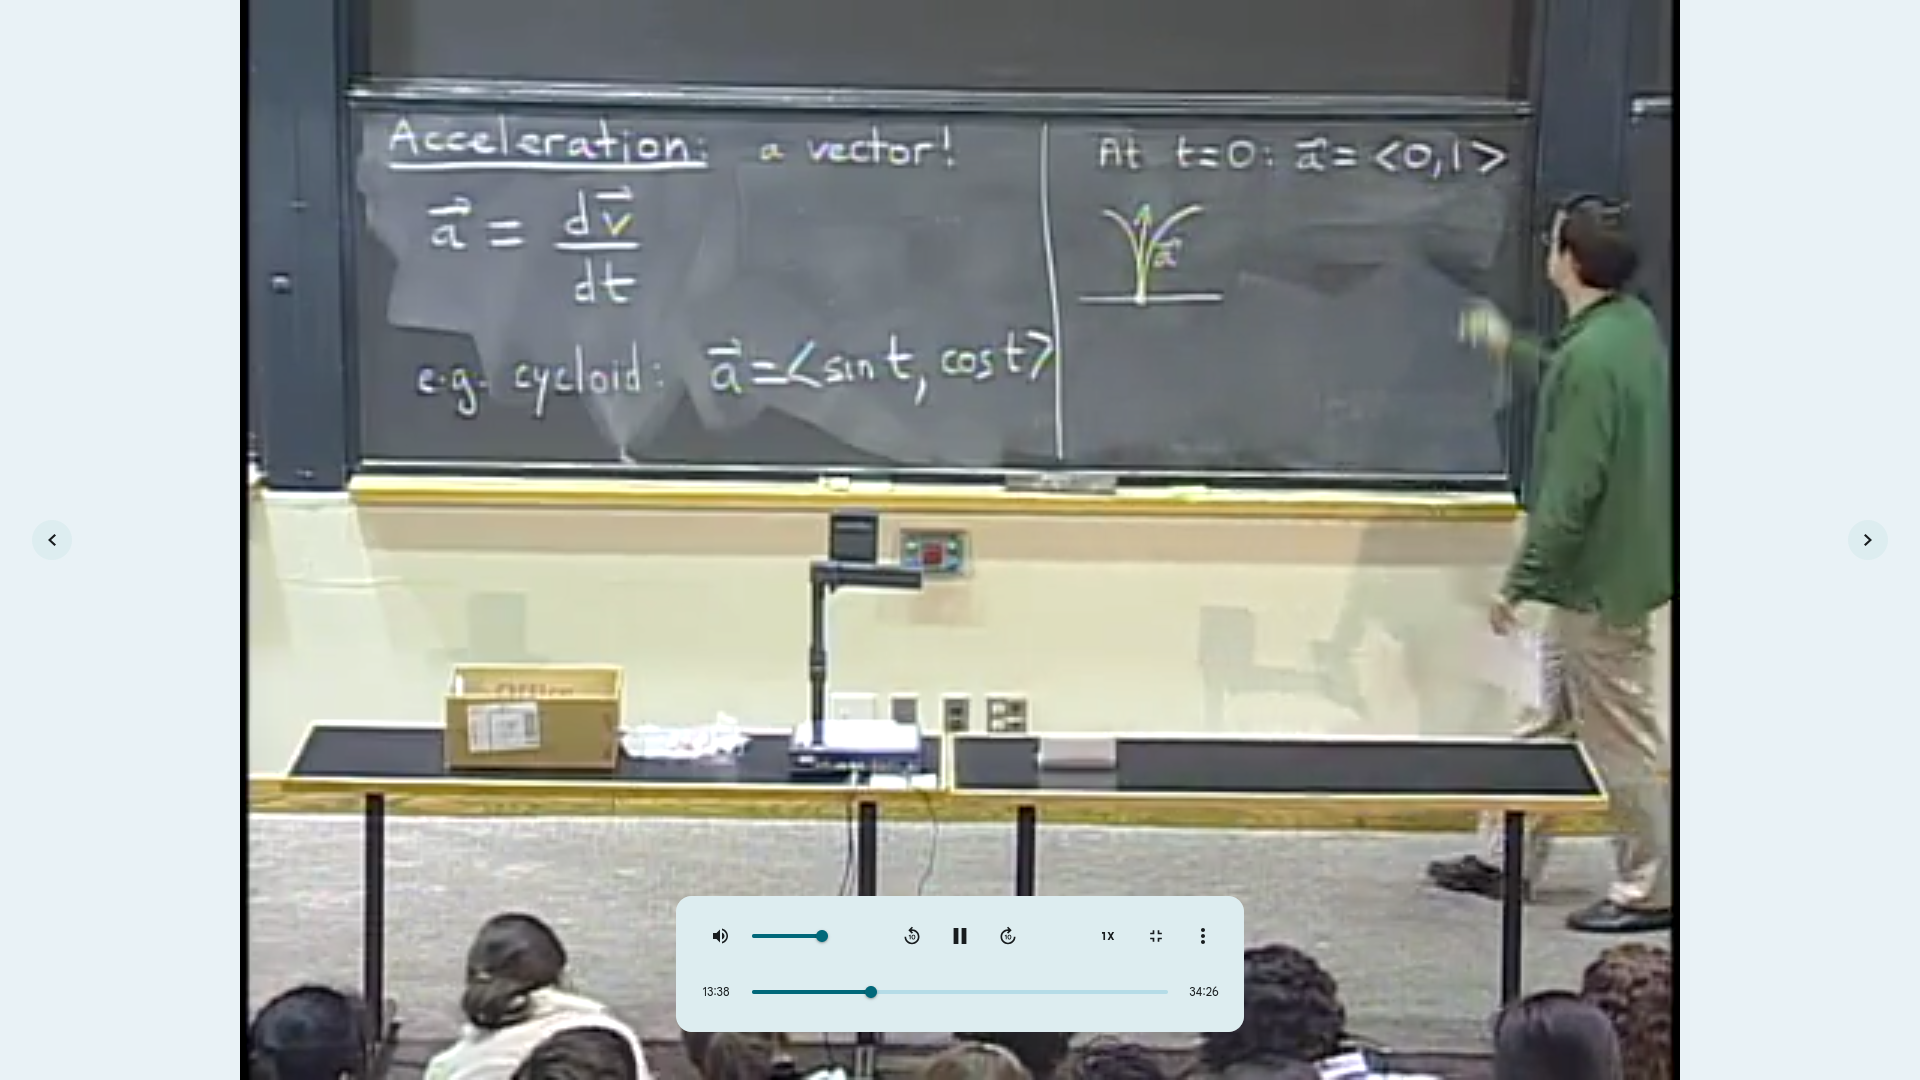 Acceleration: a vector!
a⃗ = dv⃗/dt
e.g. cycloid: a⃗ = <sin t, cos t>
At t=0: a⃗ = <0,1>
a⃗
Office
10
10
1X
13:38
34:26